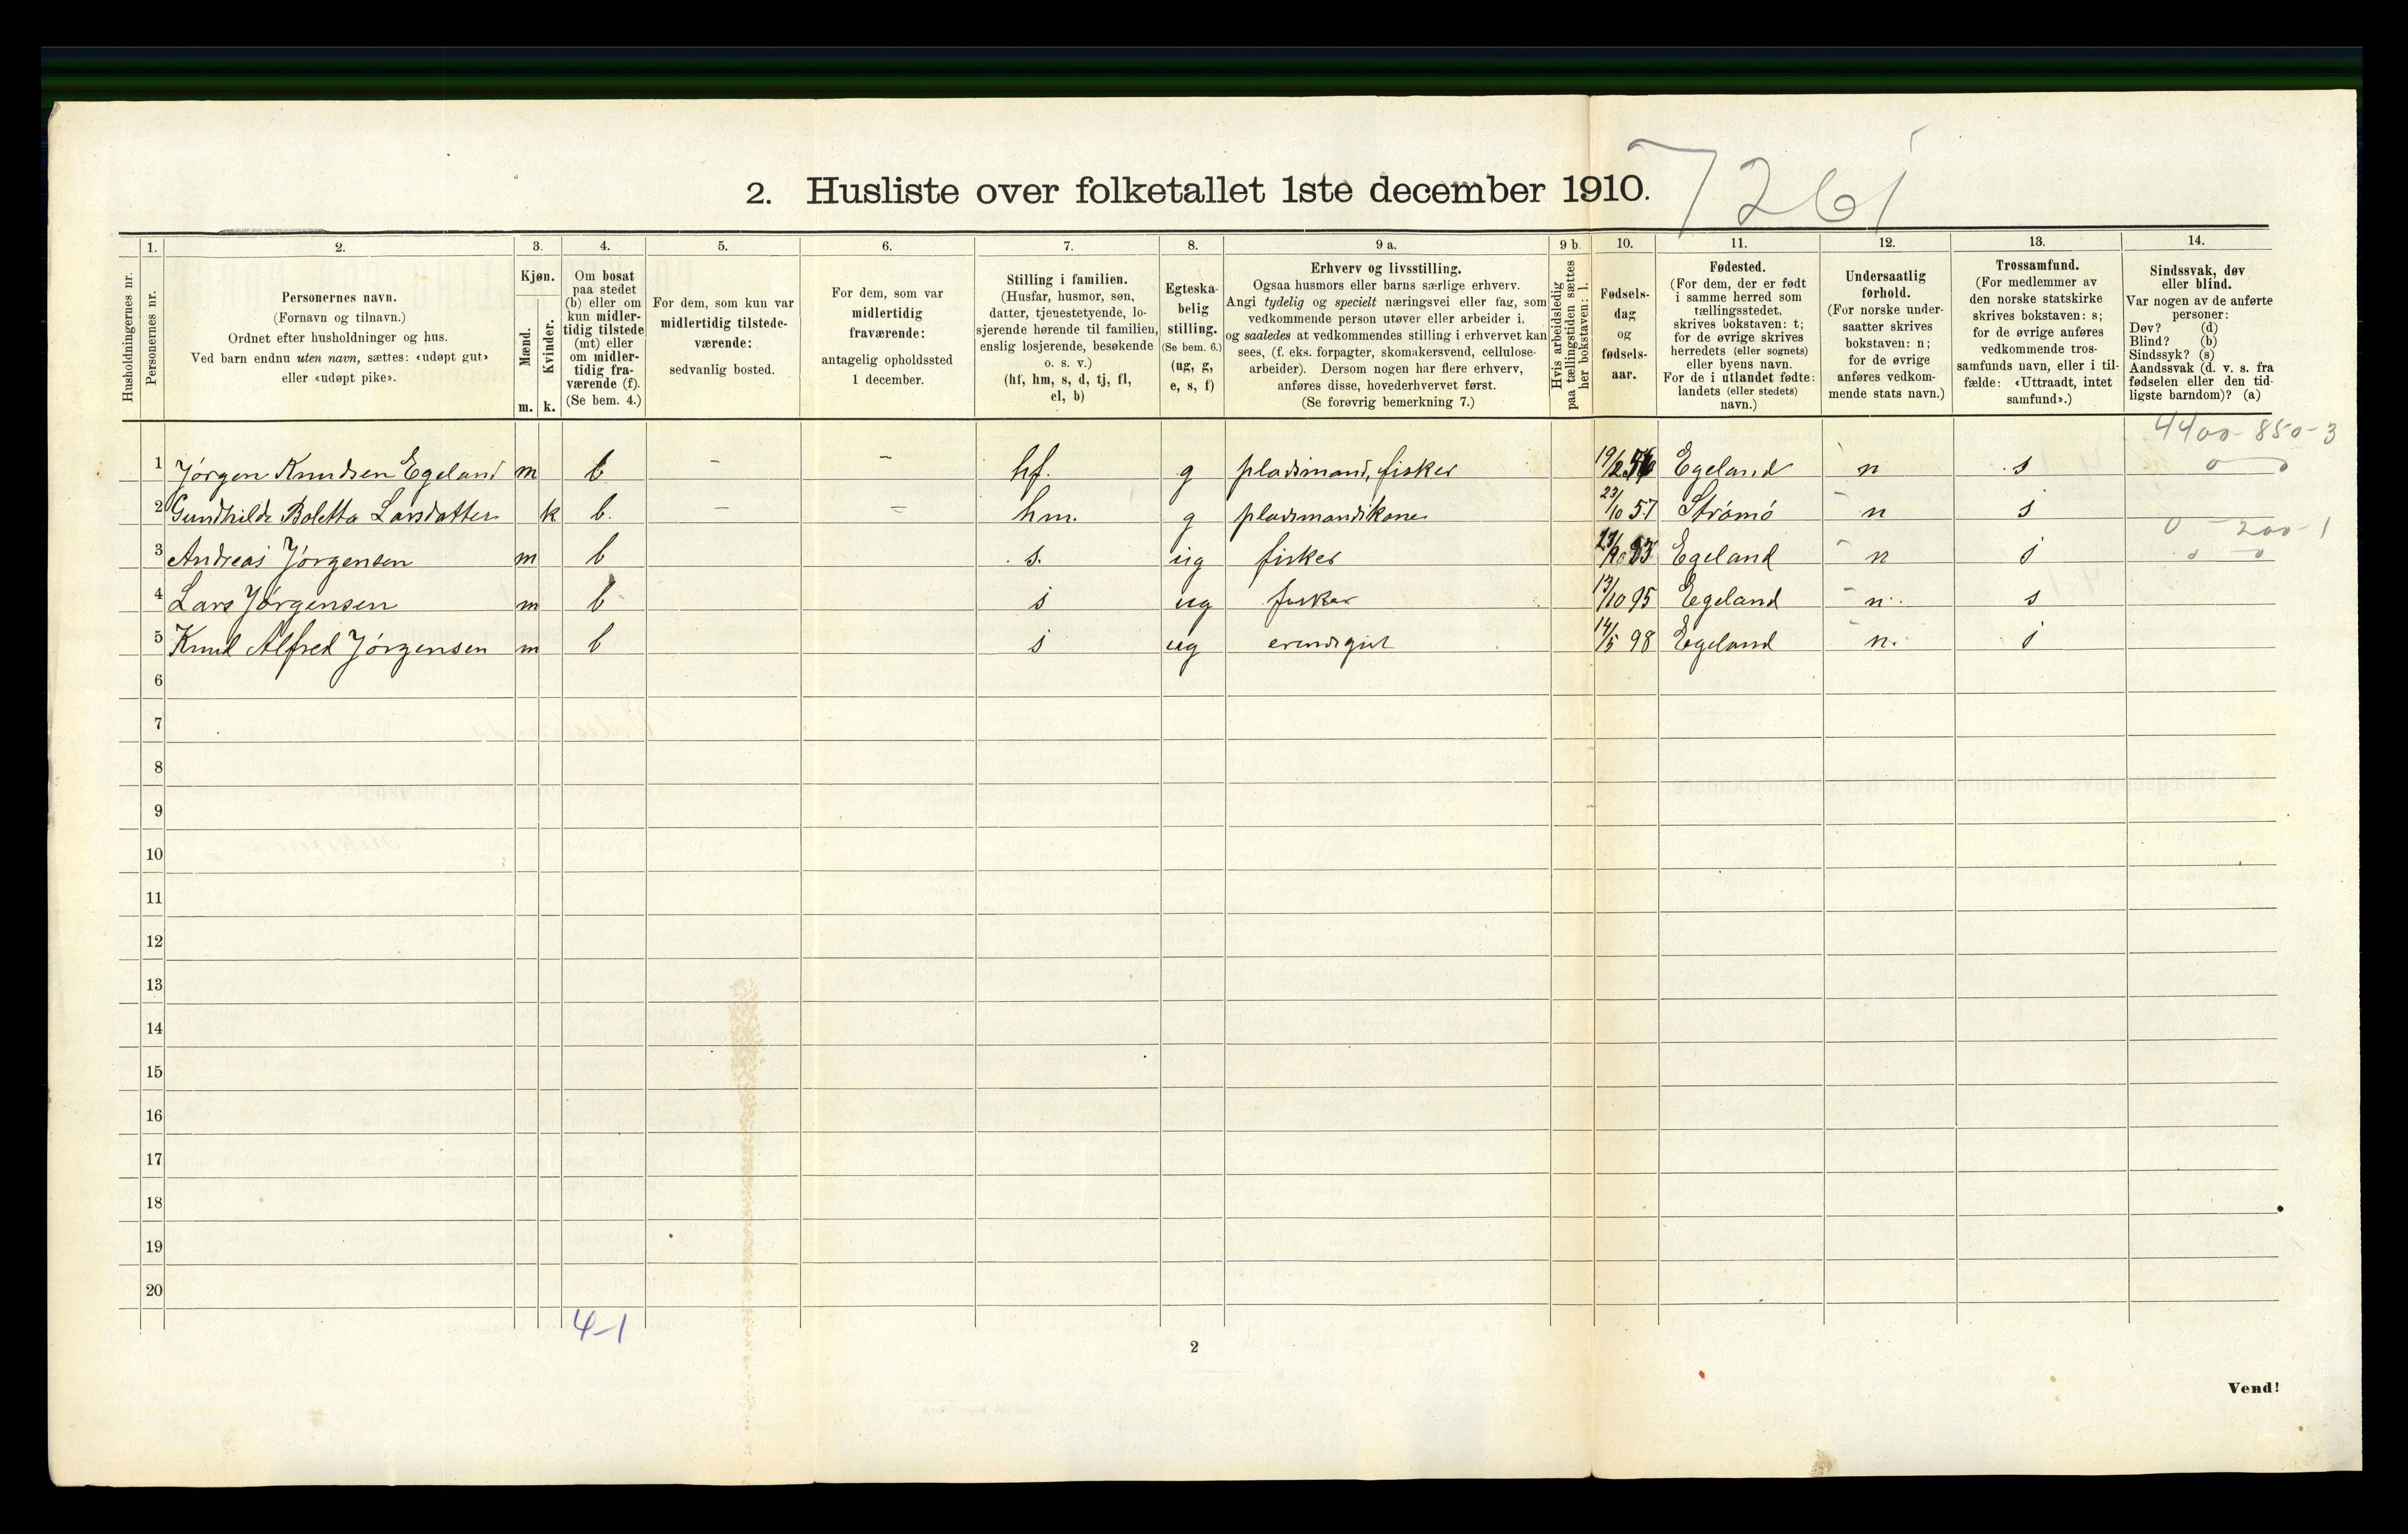 7261
2. Husliste over folketallet 1ste december 1910.
Husholdningernes nr.
1.
Personernes nr.
2.
Personernes navn.
(Fornavn og tilnavn.)
Ordnet efter husholdninger og hus.
Ved barn endnu uten navn, sættes: «udøpt gut»
eller «udøpt pike».
3.
Kjøn.
Mænd.
Kvinder.
m. k.
4.
Om bosat
paa stedet
(b) eller om
kun midler-
tidig tilstede
(mt) eller
om midler-
tidig fra-
værende (f).
(Se bem. 4.)
5.
For dem, som kun var
midlertidig tilstede-
værende:
sedvanlig bosted.
6.
For dem, som var
midlertidig
fraværende:
antagelig opholdssted
1 december.
7.
Stilling i familien.
(Husfar, husmor, søn,
datter, tjenestetyende, lo-
sjerende hørende til familien,
enslig losjerende, besøkende
o. s. v.)
(hf, hm, s, d, tj, fl,
el, b)
8.
Egteska-
belig
stilling.
(Se bem. 6.)
(ug, g,
e, s, f)
9 a.
Erhverv og livsstilling.
Ogsaa husmors eller barns særlige erhverv.
Angi tydelig og specielt næringsvei eller fag, som
vedkommende person utøver eller arbeider i,
og saaledes at vedkommendes stilling i erhvervet kan
sees, (f. eks. forpagter, skomakersvend, cellulose-
arbeider). Dersom nogen har flere erhverv,
anføres disse, hovederhvervet først.
(Se forøvrig bemerkning 7.)
9 b.
Hvis arbeidsledig
paa tællingstiden sættes
her bokstaven: l.
10.
Fødsels-
dag
og
fødsels-
aar.
11.
Fødested.
(For dem, der er født
i samme herred som
tællingsstedet,
skrives bokstaven: t;
for de øvrige skrives
herredets (eller sognets)
eller byens navn.
For de i utlandet fødte:
landets (eller stedets)
navn.)
12.
Undersaatlig
forhold.
(For norske under-
saatter skrives
bokstaven: n;
for de øvrige
anføres vedkom-
mende stats navn.)
13.
Trossamfund.
(For medlemmer av
den norske statskirke
skrives bokstaven: s;
for de øvrige anføres
vedkommende tros-
samfunds navn, eller i til-
fælde: «Uttraadt, intet
samfund».)
14.
Sindssvak, døv
eller blind.
Var nogen av de anførte
personer:
Døv? (d)
Blind? (b)
Sindssyk? (s)
Aandssvak (d. v. s. fra
fødselen eller den tid-
ligste barndom)? (a)
4400-850-3
1 Jörgen Knudsen Egeland m b - - hf. g pladsmand, fisker 19/2 56 Egeland n s 0 0
2 Gundhilde Boletta Larsdatter k b. - - hm. g pladsmandskone 23/10 57 Strömö n s
0 - 200-1
3 Andreas Jörgensen m b s. ug fisker 83 Egeland n s 0 0
4 Lars Jörgensen m b s ug fisker 13/10 95 Egeland n. s
5 Knud Alfred Jörgensen m b s ug erendsgut 14/5 98 Egeland n. s
6
7
8
9
10
11
12
13
14
15
16
17
18
19
20
4-1
2
Vend!